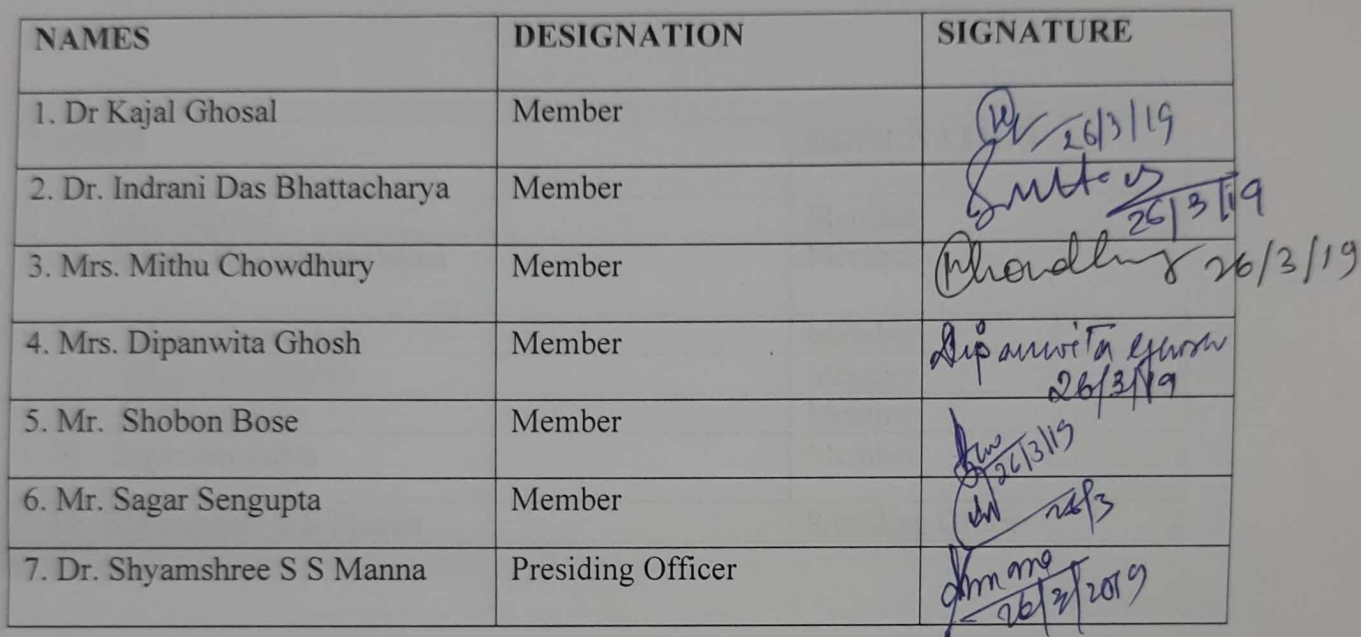 NAMES DESIGNATION SIGNATURE
1. Dr Kajal Ghosal Member 26/3/19
2. Dr. Indrani Das Bhattacharya Member 26/3/19
3. Mrs. Mithu Chowdhury Member Chowdhury 26/3/19
4. Mrs. Dipanwita Ghosh Member Dipanwita Ghosh
26/3/19
5. Mr. Shobon Bose Member 26/3/19
6. Mr. Sagar Sengupta Member 26/3
7. Dr. Shyamshree S S Manna Presiding Officer
26/3/2019